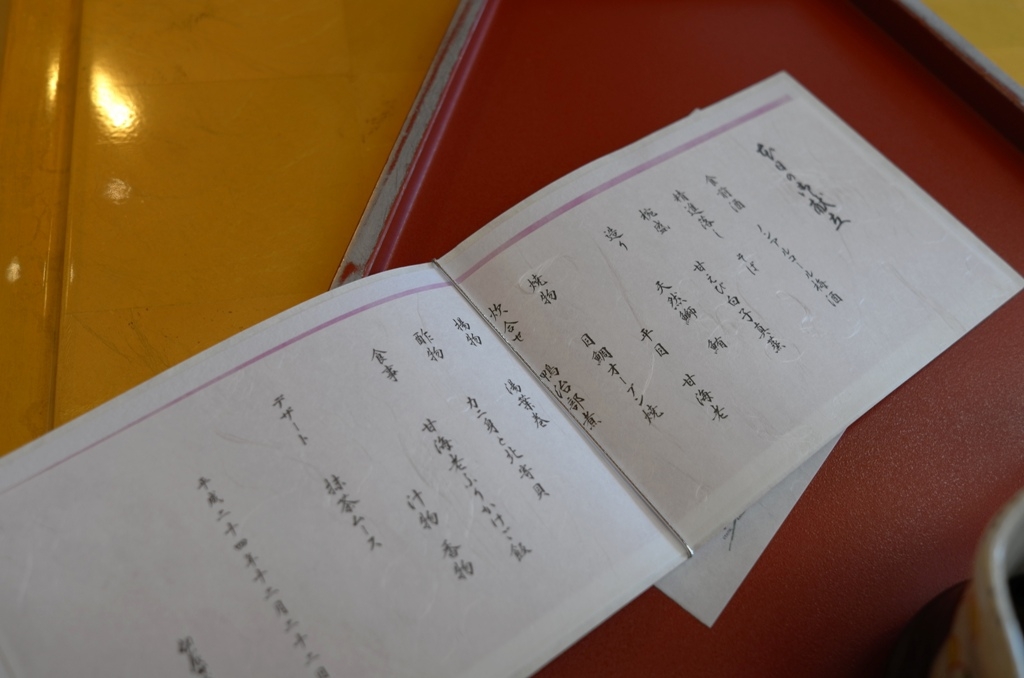 本日の御献立
食前酒 ノンアルコール梅酒
精進浸し そば
椀盛 甘えび白子真蒸
造り 天然鰤 鮪 甘海老
平目
焼物 目鯛オーブン焼
炊合せ 鴨治部煮
揚物 湯葉巻
酢物 カニ身と北寄貝
食事 甘海老ふりかけご飯
汁物 香物
デザート 抹茶ムース
平成二十四年十二月二十二日